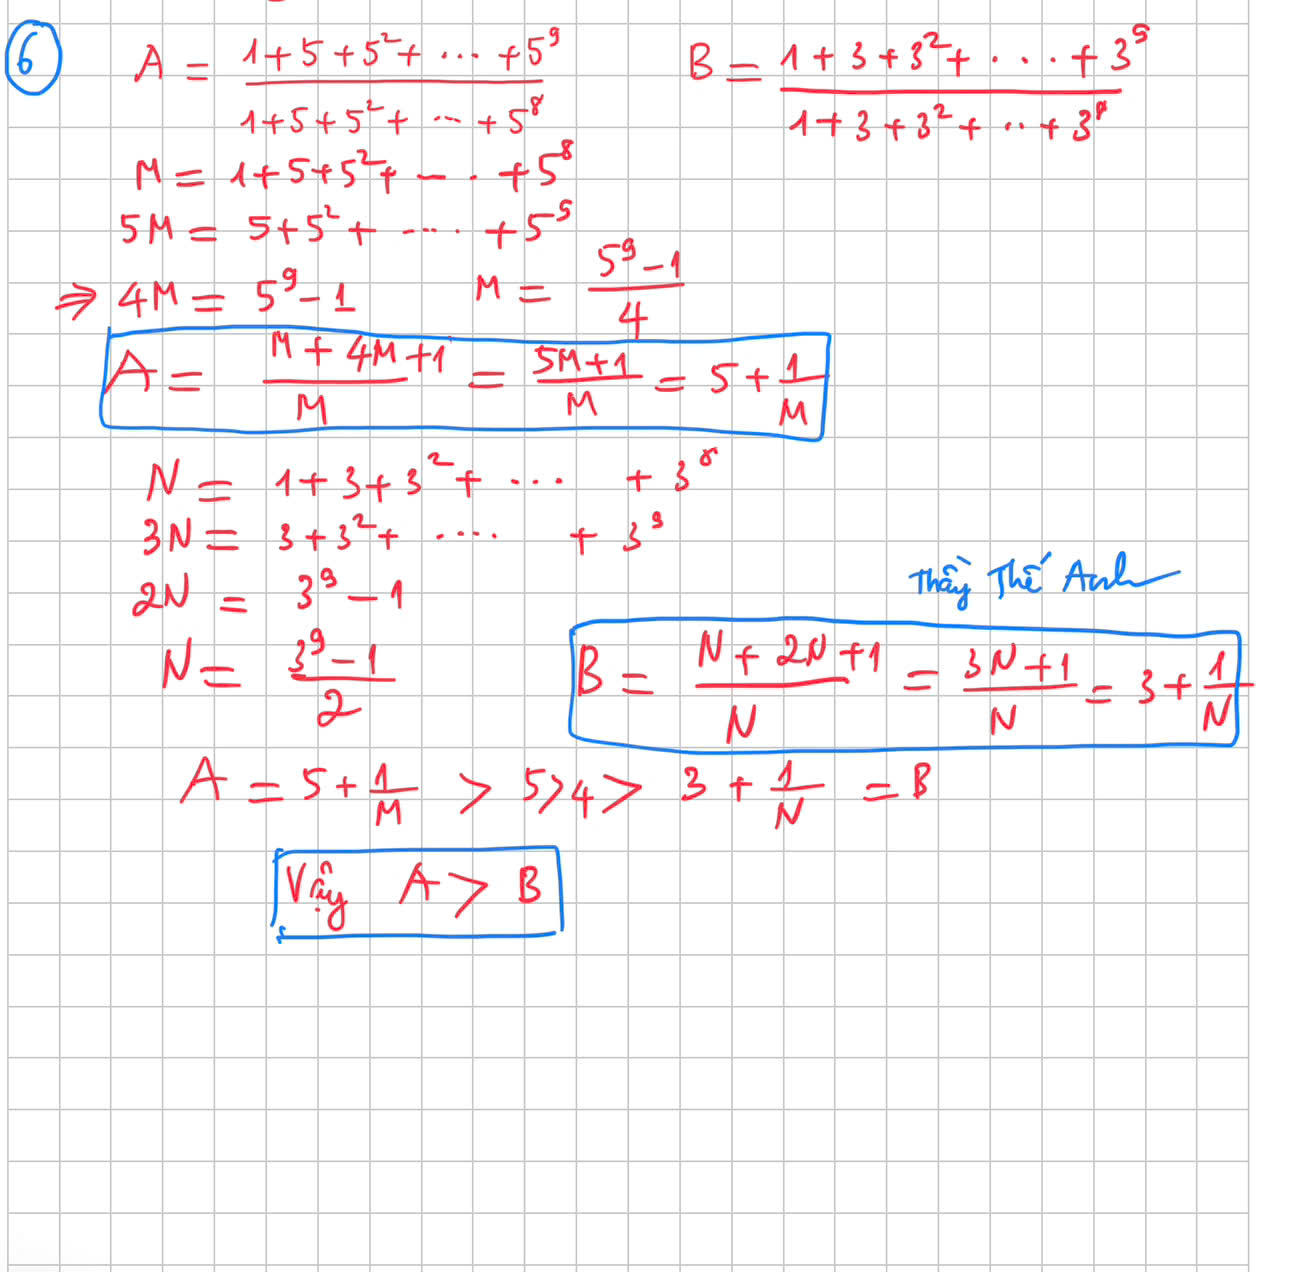 6 A = (1+5+5²+ ... +5⁹)/(1+5+5²+ ... +5⁸) B = (1+3+3²+ .... +3⁹)/(1+3+3²+ ... +3⁸)
M = 1+5+5²+ ... +5⁸
5M = 5+5²+ .... +5⁹
⇒ 4M = 5⁹-1 M = (5⁹-1)/4
A = (M+4M+1)/M = (5M+1)/M = 5+1/M
N = 1+3+3²+ ... +3⁸
3N = 3+3²+ .... +3⁹
Thầy Thế Anh
2N = 3⁹-1
N = (3⁹-1)/2 B = (N+2N+1)/N = (3N+1)/N = 3+1/N
A = 5+1/M > 5>4> 3+1/N = B
Vậy A > B